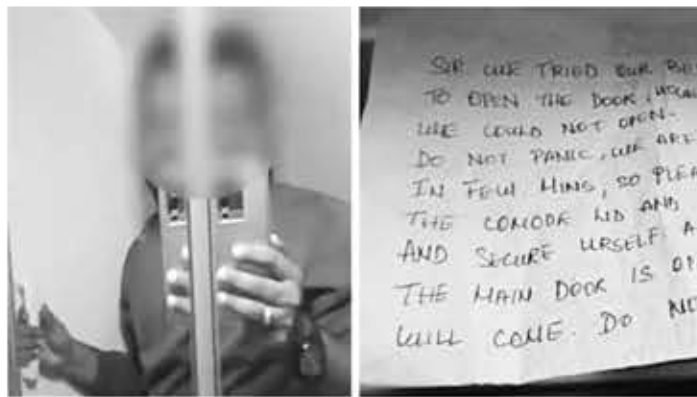 SIR WE TRIED OUR BE
TO OPEN THE DOOR,
WE COULD NOT OPEN.
DO NOT PANIC, WE ARE
IN FEW MINS, SO PLEA
THE COMODE LID AND
AND SECURE URSELF. A
THE MAIN DOOR IS OP
WILL COME. DO NO